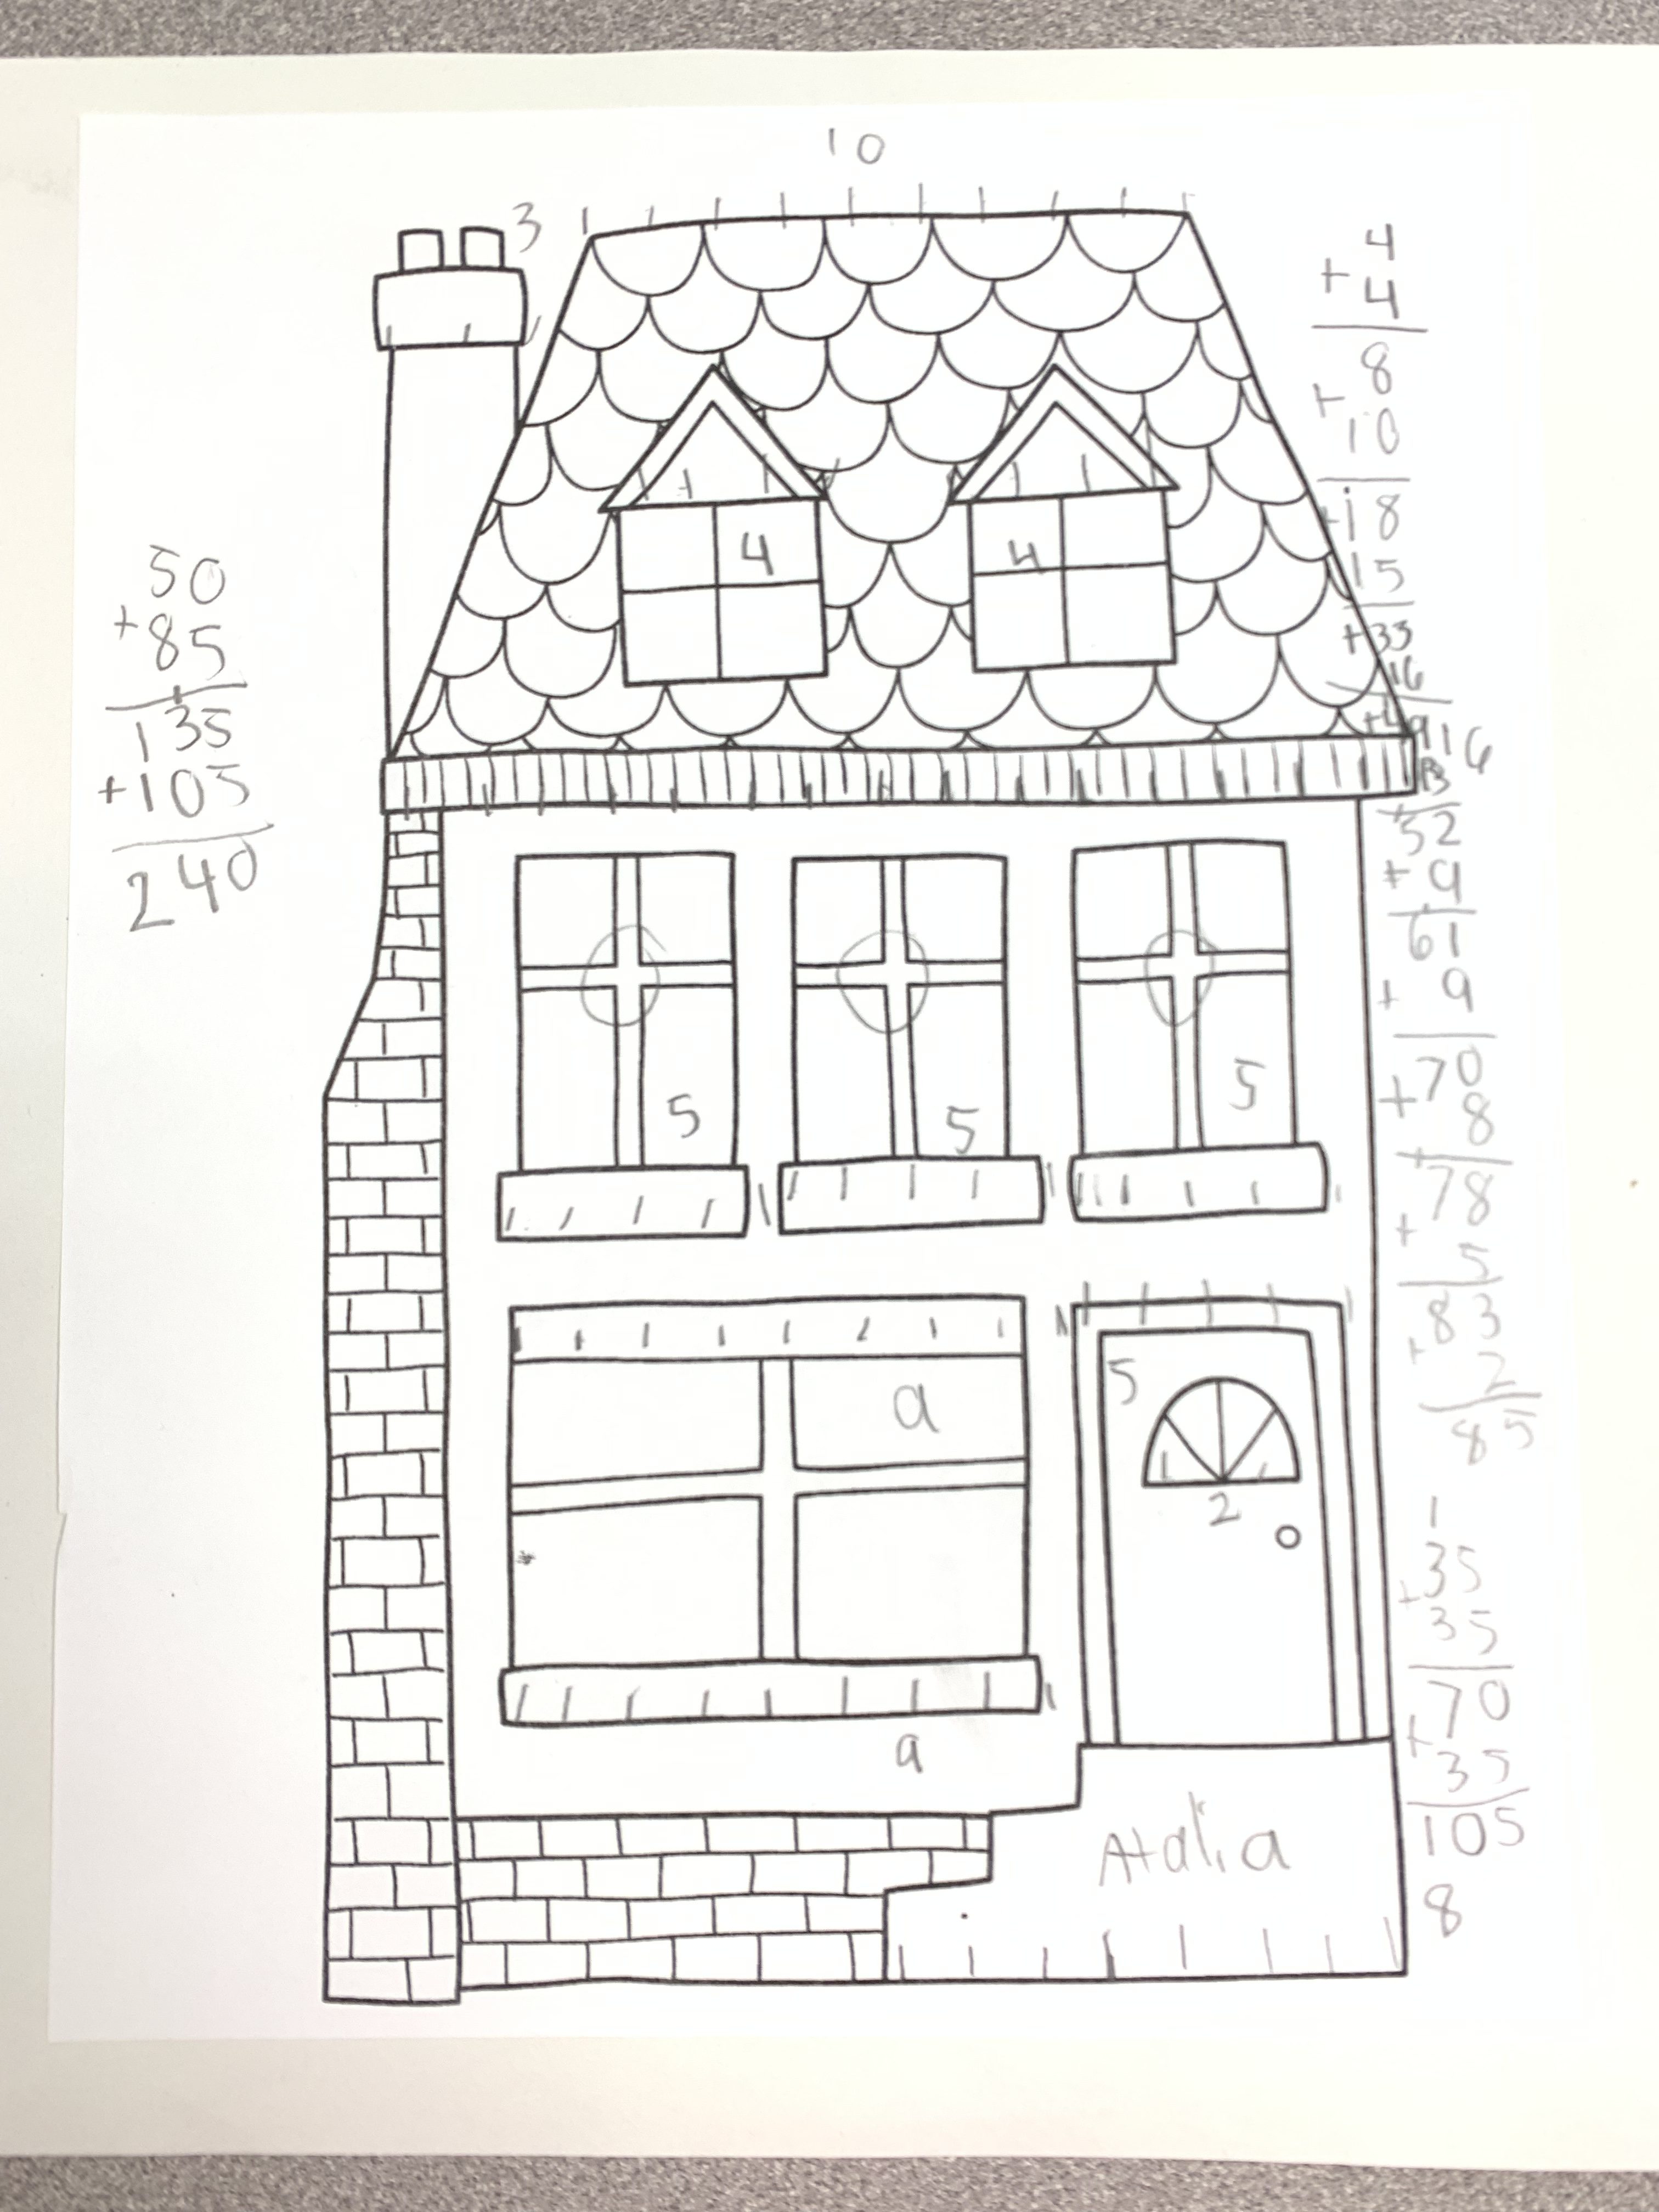 10
3
4
+ 4
8
+ 10
18
15
+33
16
+49
16
3
52
+ 9
61
+ 9
+70
8
+78
+ 5
83
+ 2
85
50
+85
135
+105
240
4
4
5
5
5
9
5
2
9
1
35
+35
70
+35
105
8
Atalia